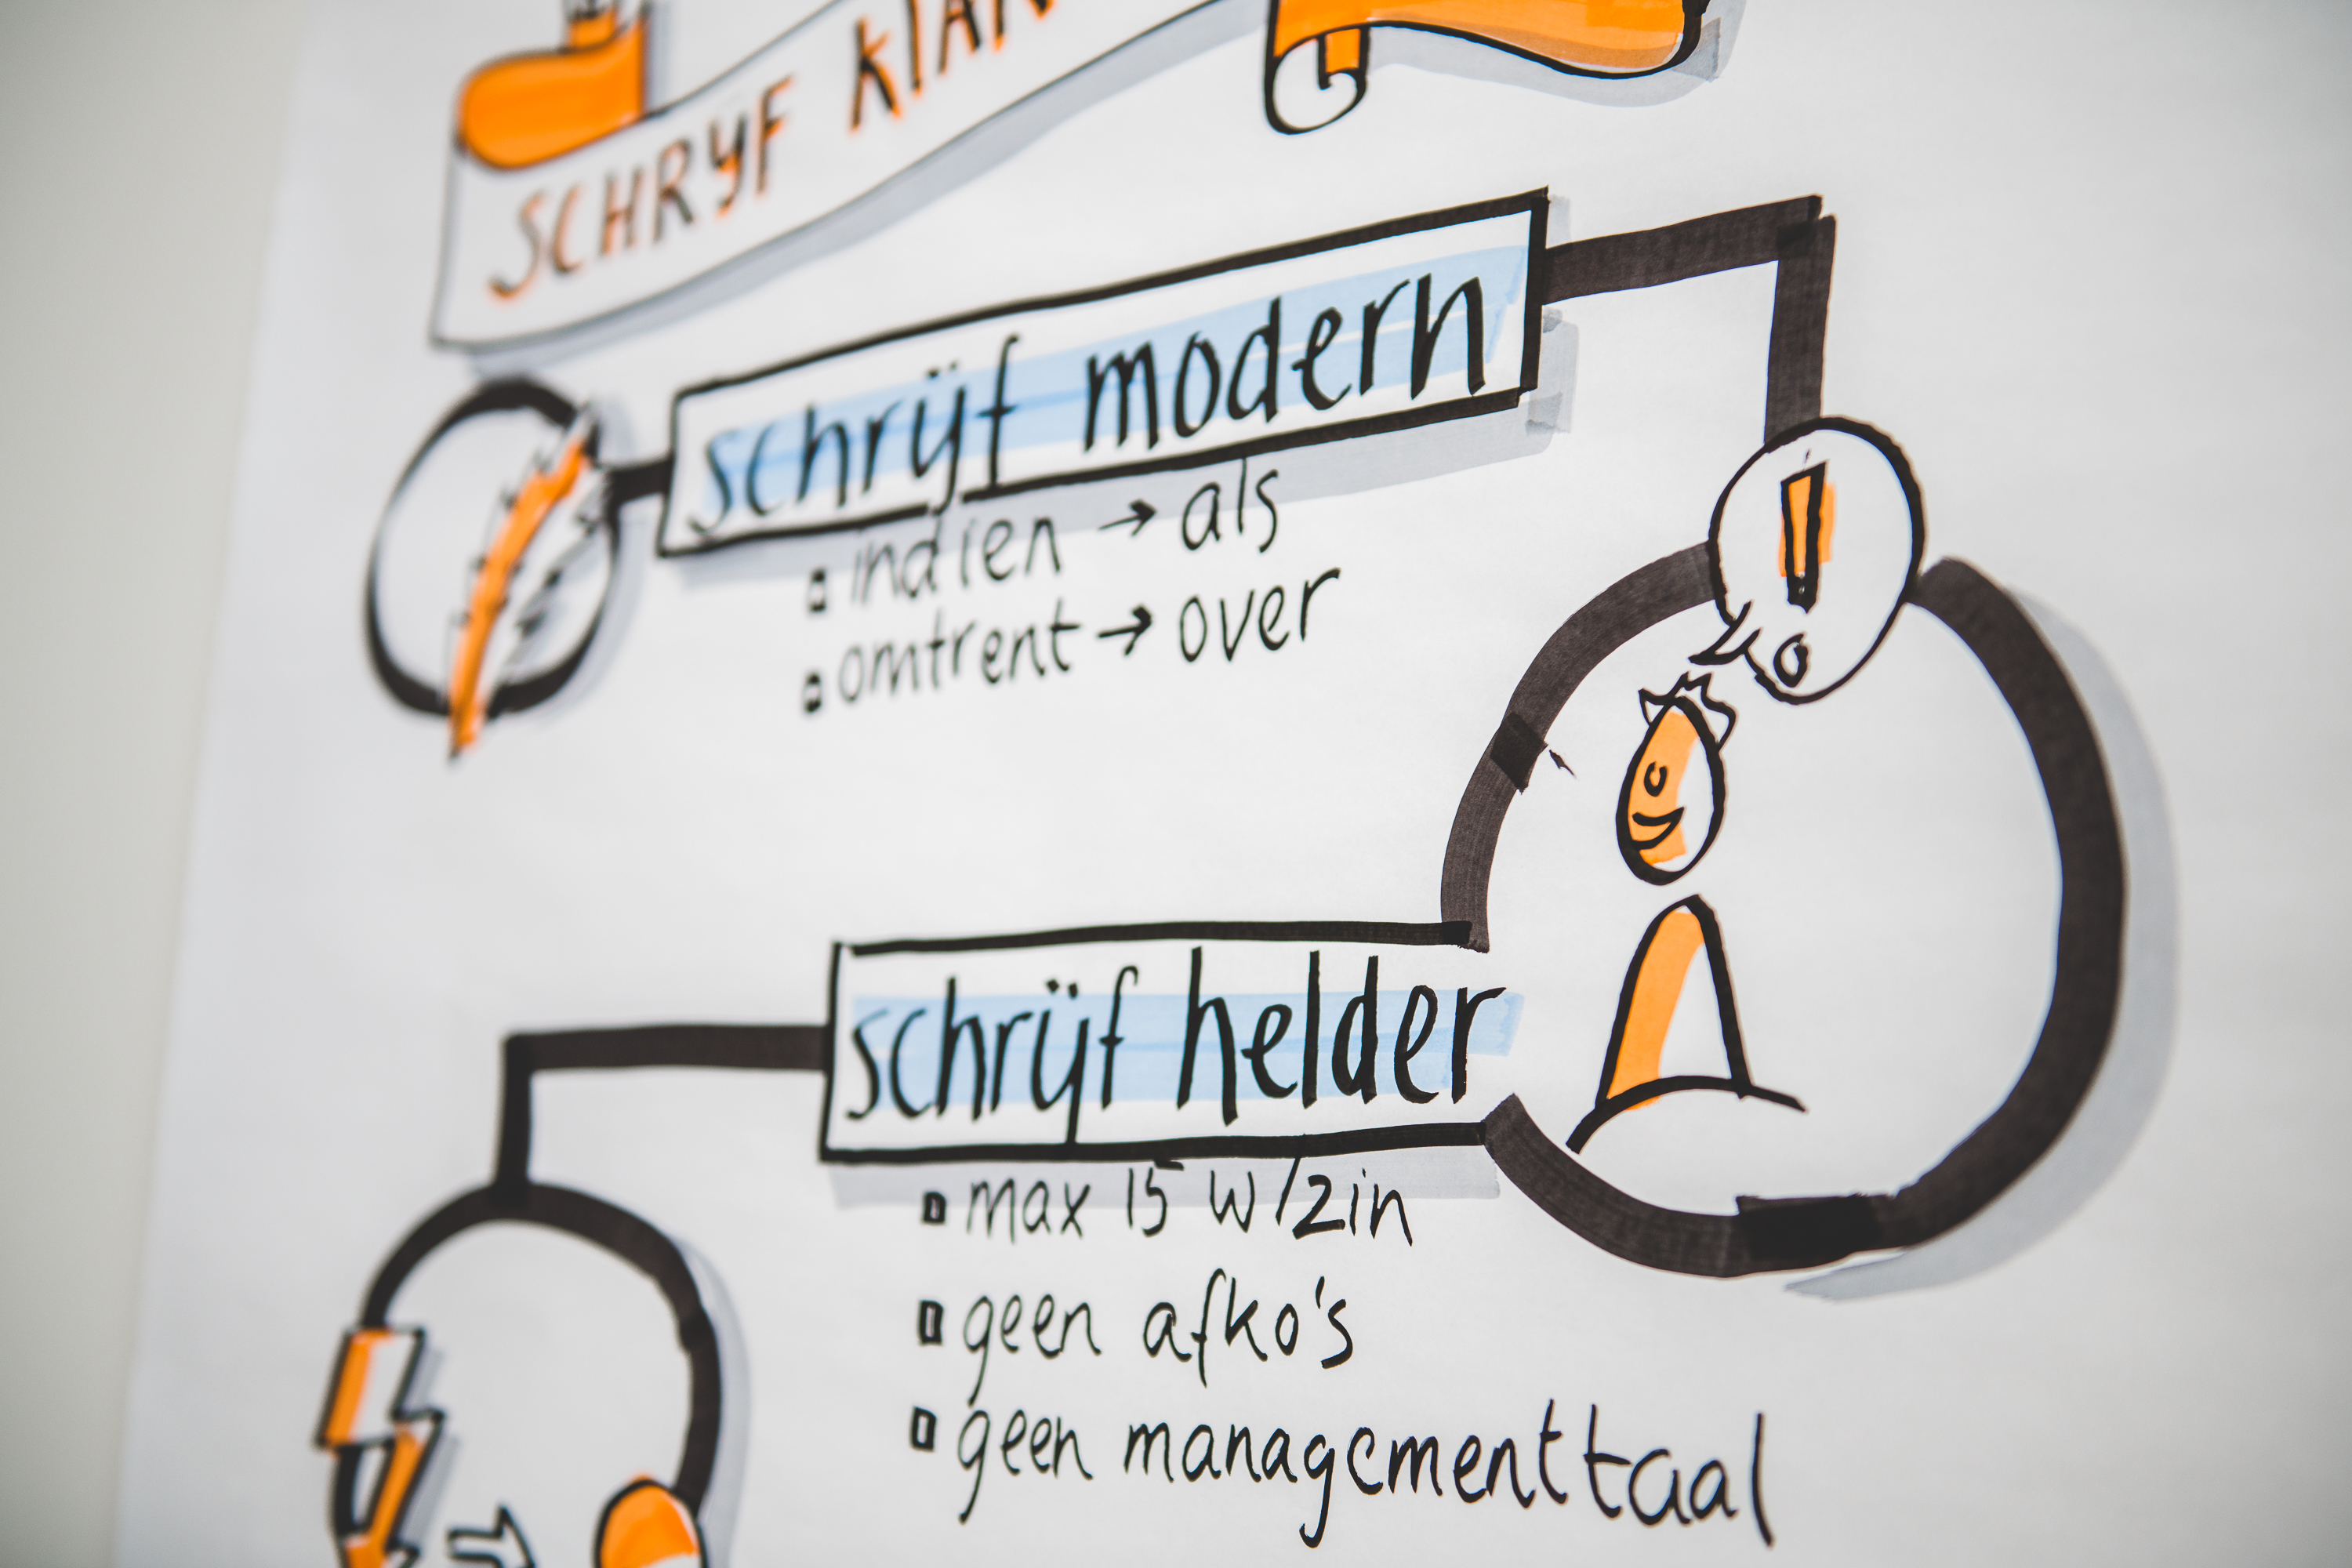 SCHRIJF KLAN
schrijf modern
indien → als
omtrent → over
schrijf helder
max 15 w/zin
geen afko's
geen managementtaal